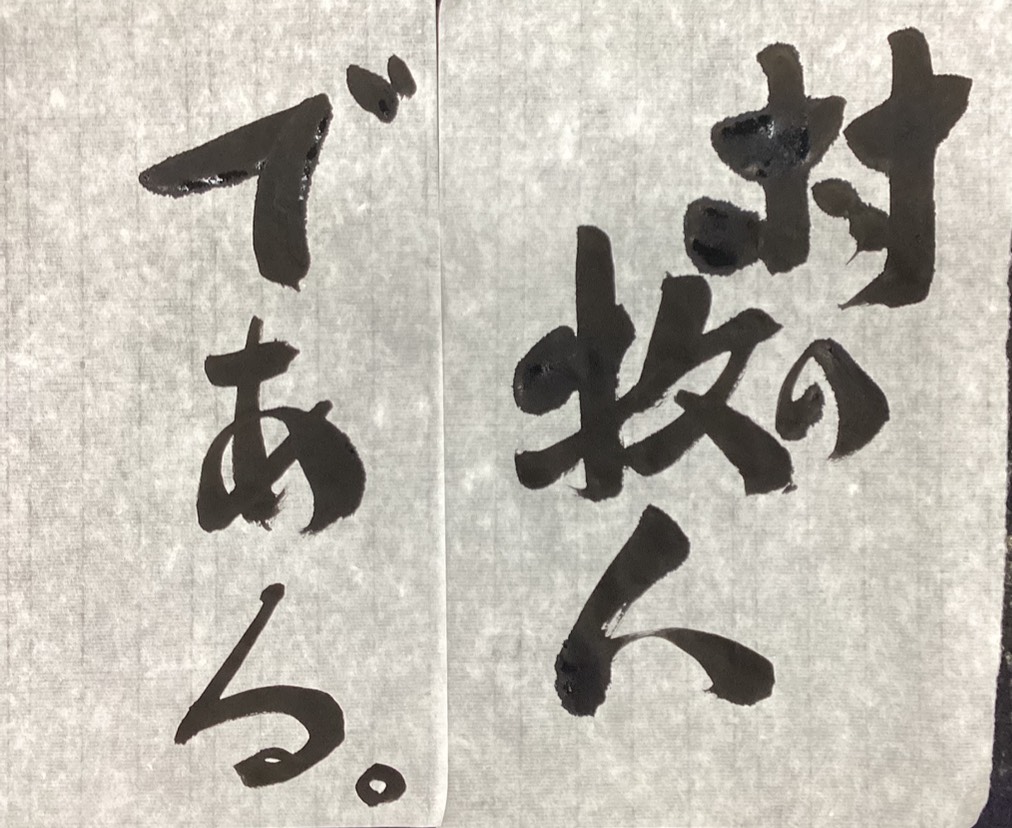 村の
牧人
である。